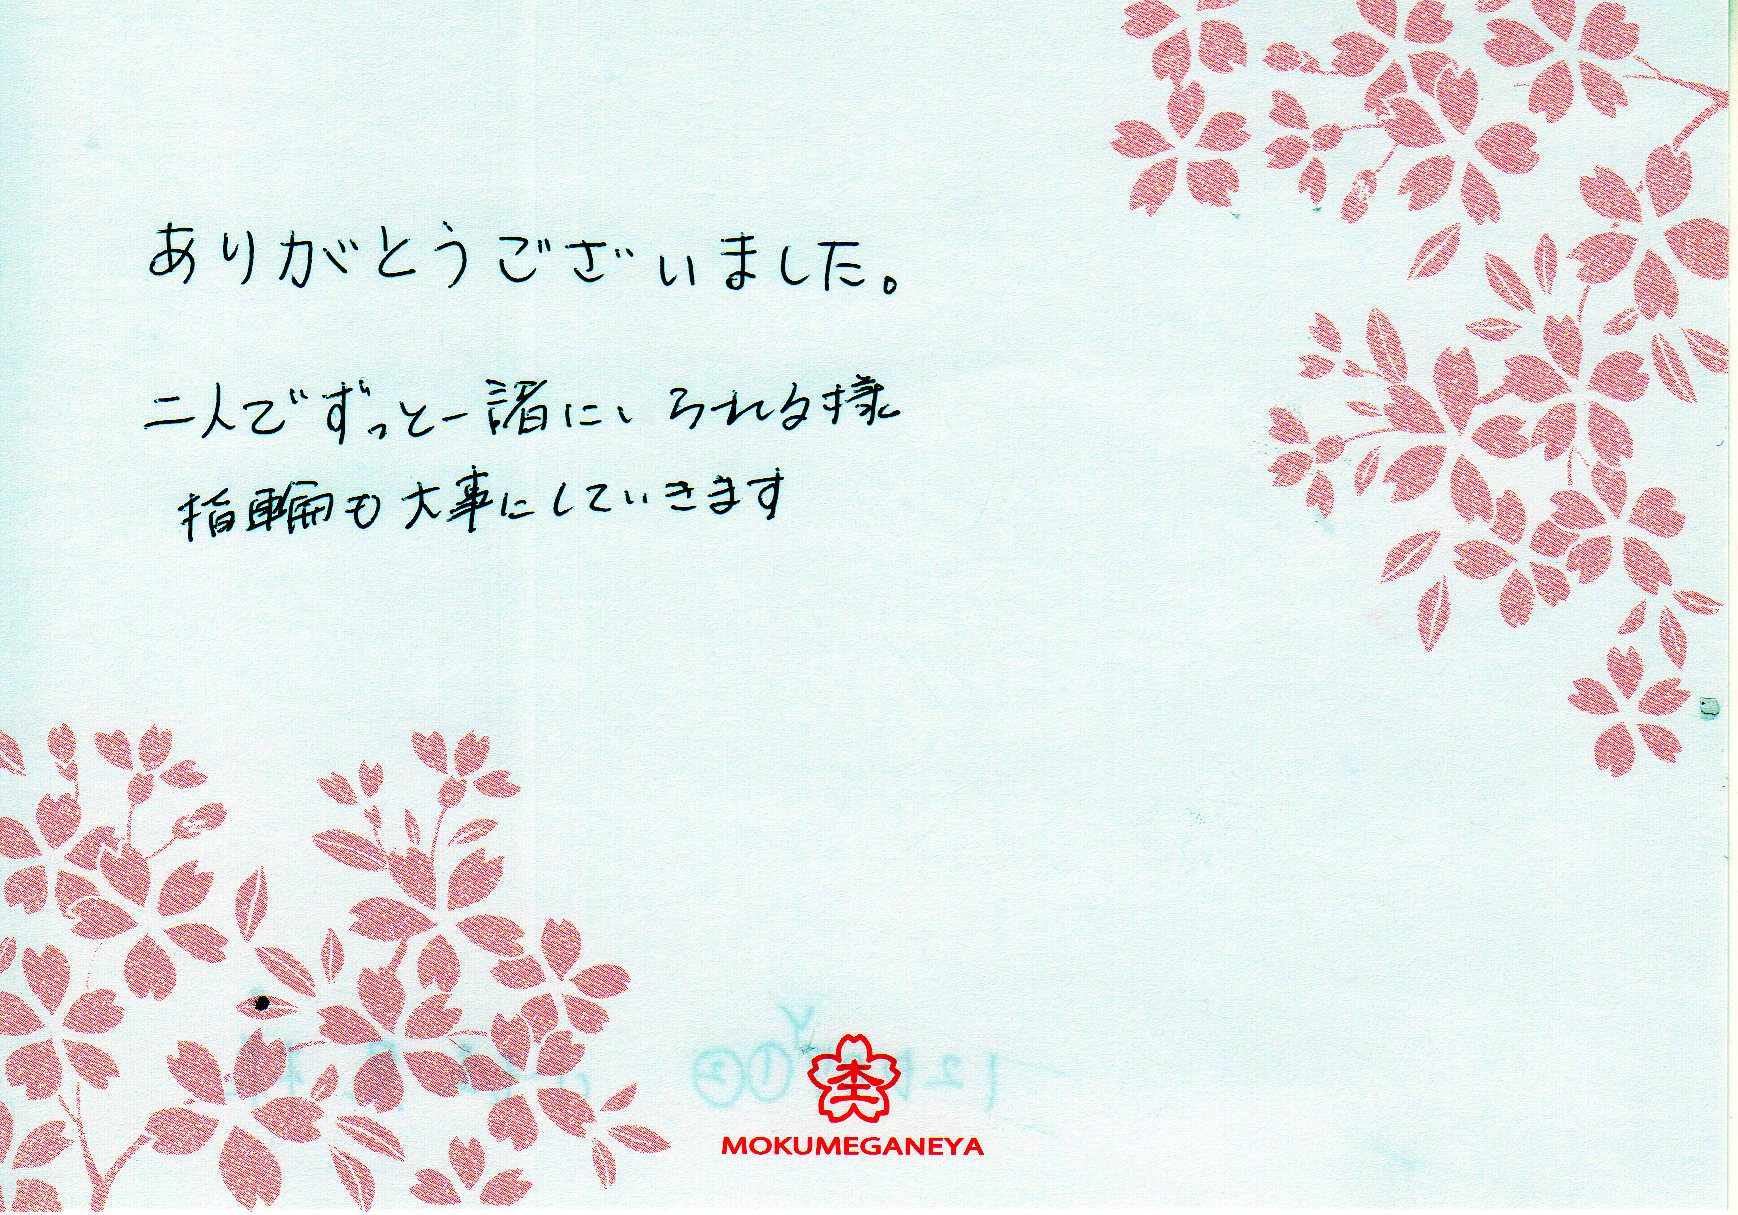 ありがとうございました。
二人でずっと一諸にいられる様
指輪も大事にしていきます
MOKUMEGANEYA